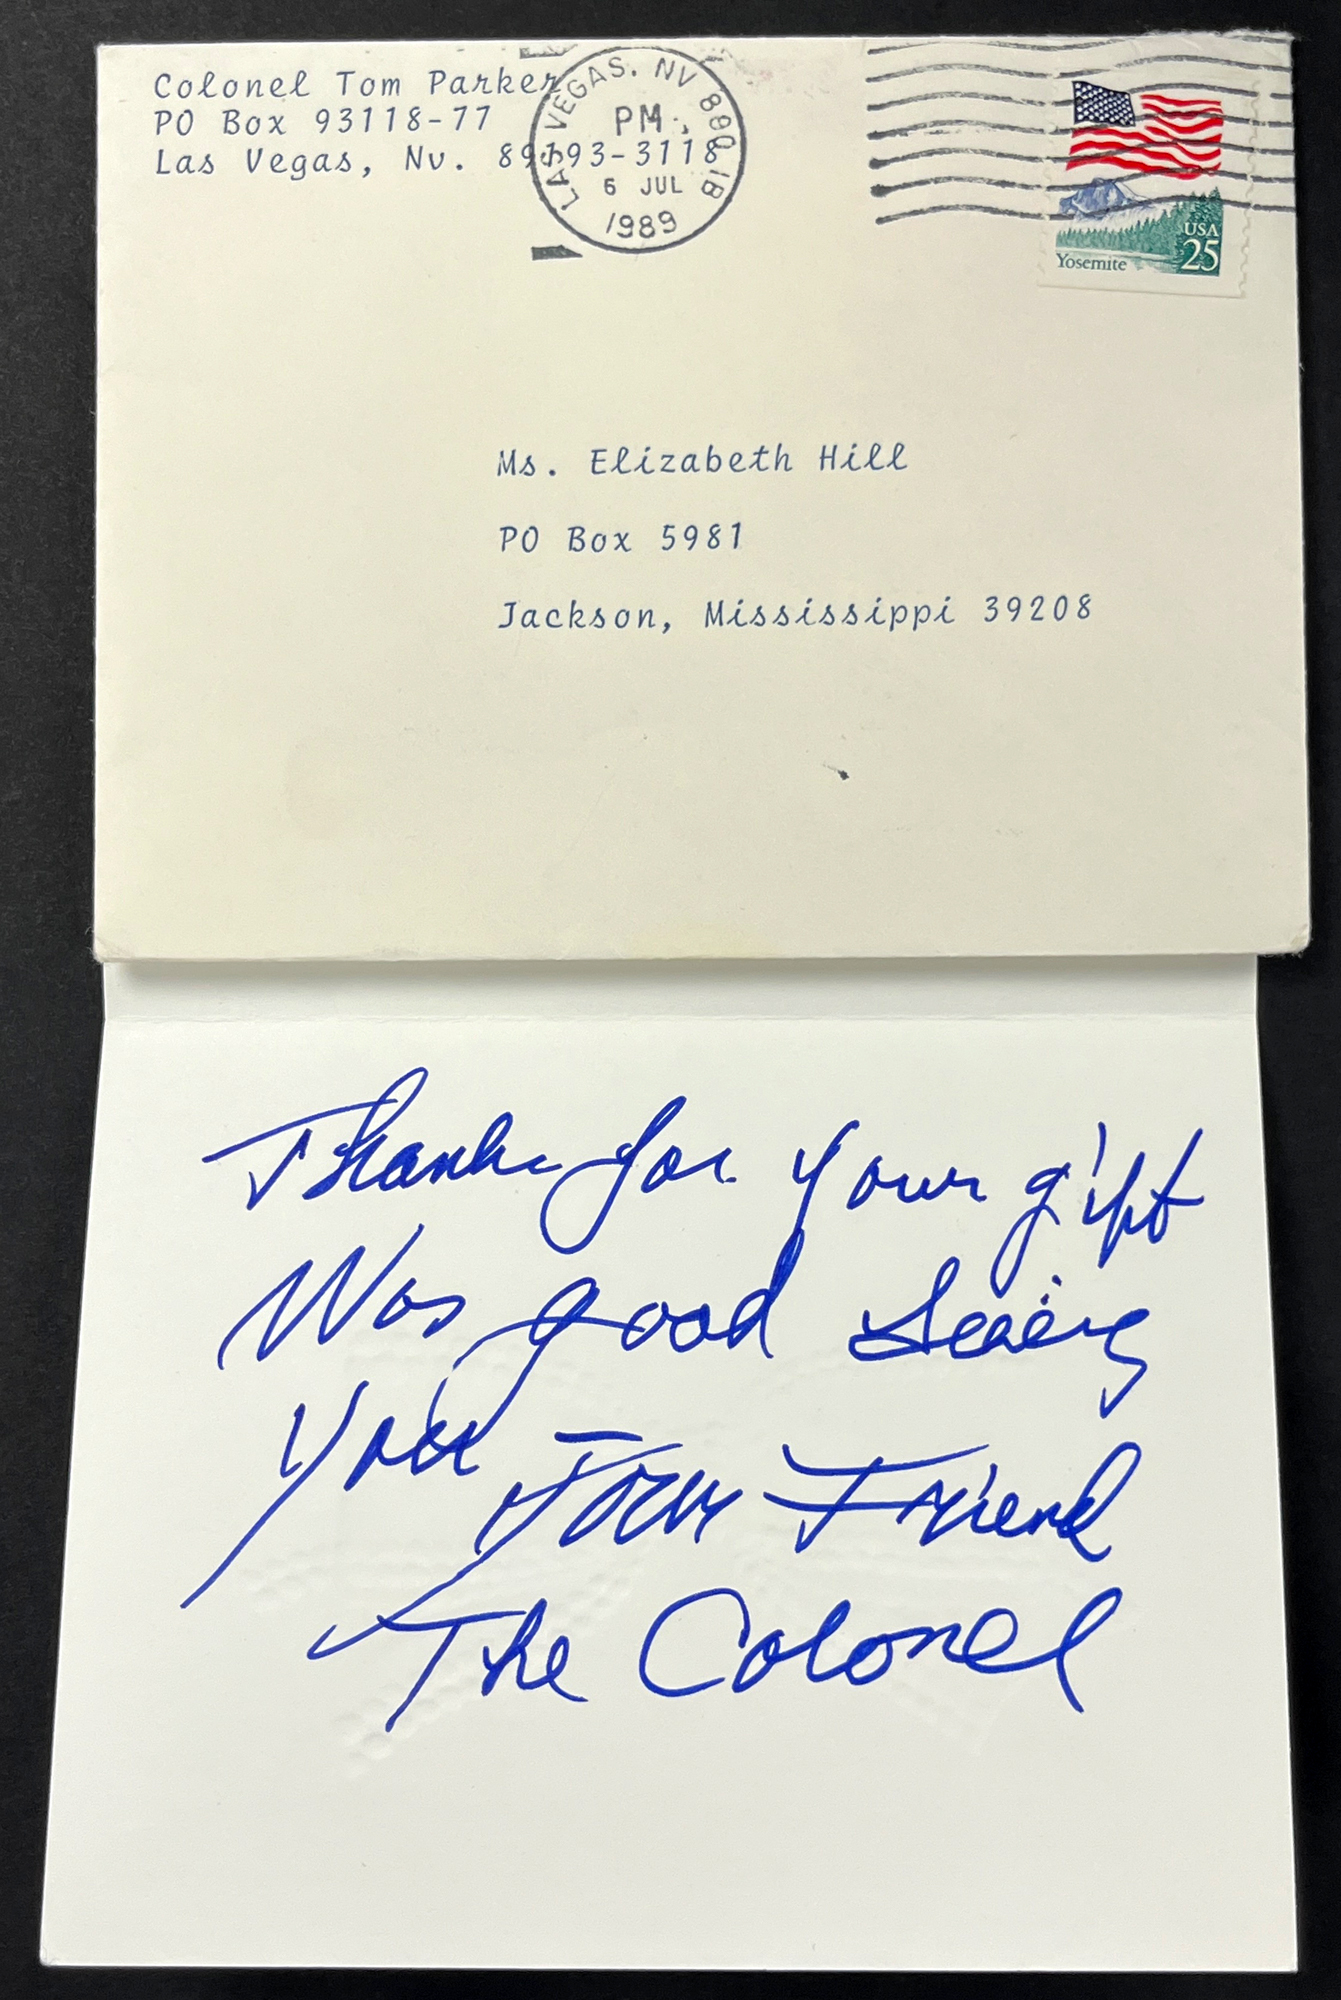 Colonel Tom Parker
PO Box 93118-77
Las Vegas, Nv. 89193-3118
LAS VEGAS, NV 890 1B
PM
6 JUL
1989
USA
25
Yosemite
Ms. Elizabeth Hill
PO Box 5981
Jackson, Mississippi 39208
Thanks for your gift
Was good Seeing
You Your Friend
The Colonel